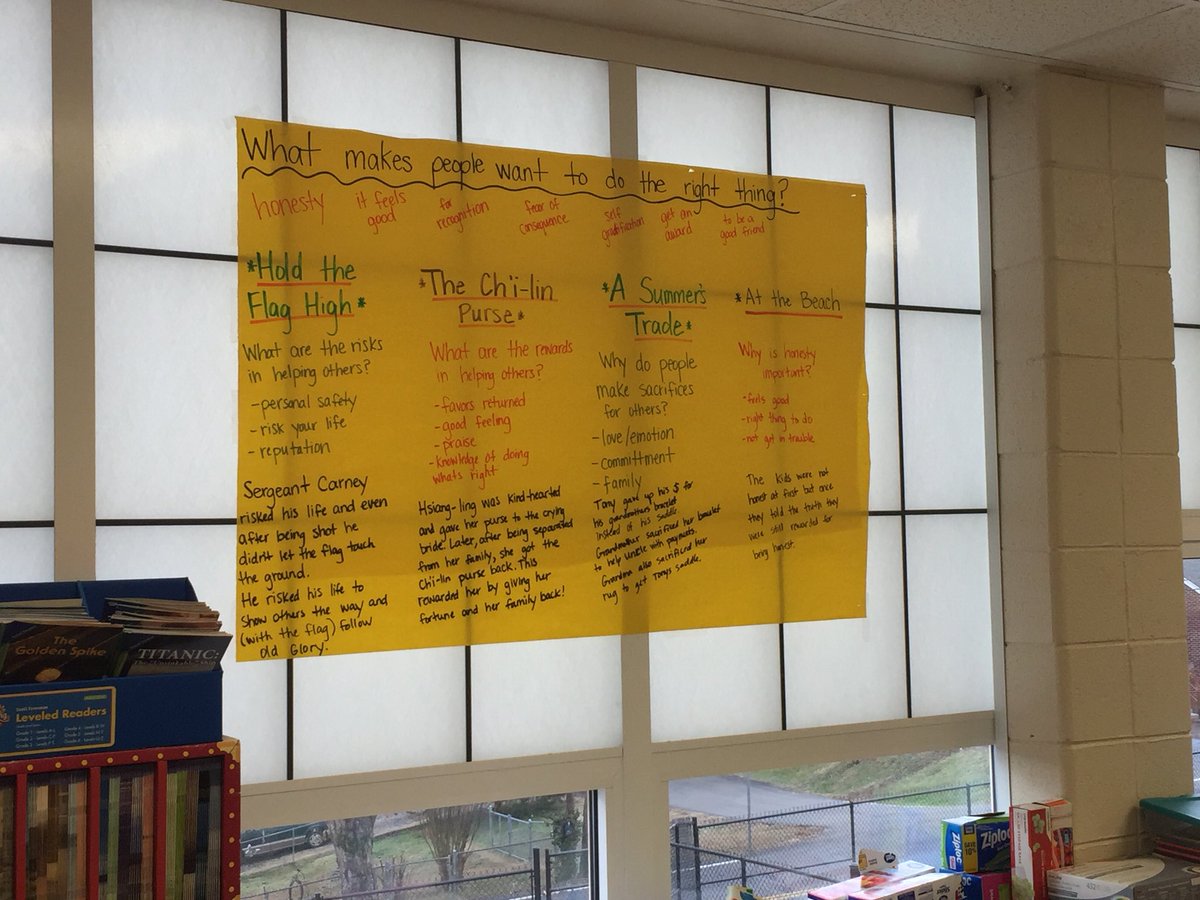 What makes people want to do the right thing?
honesty
it feels
good
for
recognition
fear of
consequence
self
gratification
get an
award
to be a
good friend
*Hold the
Flag High*
What are the risks
in helping others?
-personal safety
-risk your life
-reputation
Sergeant Carney
risked his life and even
after being shot he
didn't let the flag touch
the ground.
He risked his life to
show others the way and
(with the flag) follow
old Glory.
*The Ch'i-lin
Purse*
What are the rewards
in helping others?
-favors returned
-good feeling
-praise
-knowledge of doing
whats right
Hsiang-ling was kind-hearted
and gave her purse to the crying
bride. Later, after being separated
from her family, she got the
Chi-lin purse back. This
rewarded her by giving her
fortune and her family back!
*A Summer's
Trade*
Why do people
make sacrifices
for others?
-love/emotion
-committment
-family
Tony gave up his $ for
his grandmothers bracelet
instead of his saddle
Grandmother sacrificed her bracelet
to help uncle with payments.
Grandma also sacrificed her
rug to get Tonys saddle.
*At the Beach
Why is honesty
important?
-feels good
-right thing to do
-not get in trouble
The kids were not
honest at first but once
they told the truth they
were still rewarded for
being honest.
The
Golden Spike
TITANIC:
Leveled Readers
Ziploc